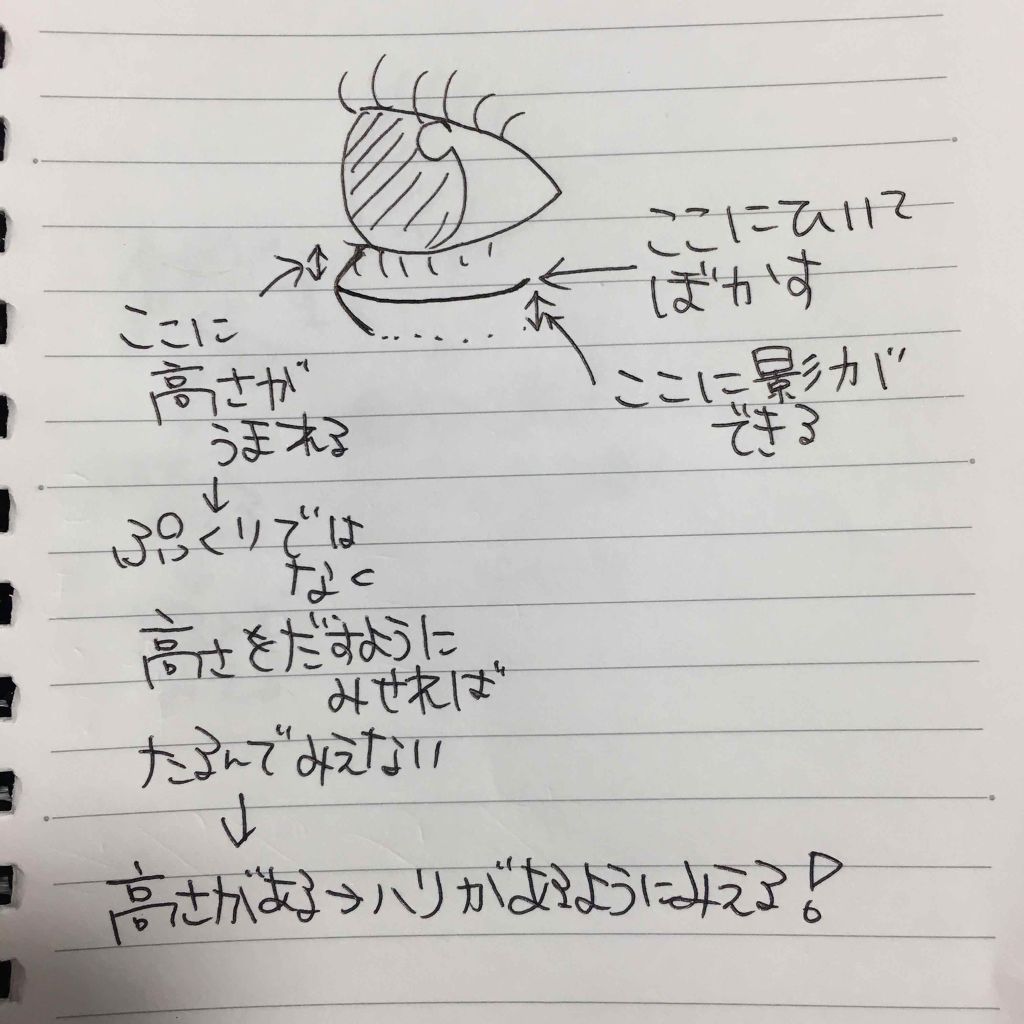 ここにひいて
ぼかす
ここに影が
できる
ここに
高さが
うまれる
↓
ぷっくりでは
なく
高さをだすように
みせれば
たるんでみえない
↓
高さがある→ハリがあるようにみえる!